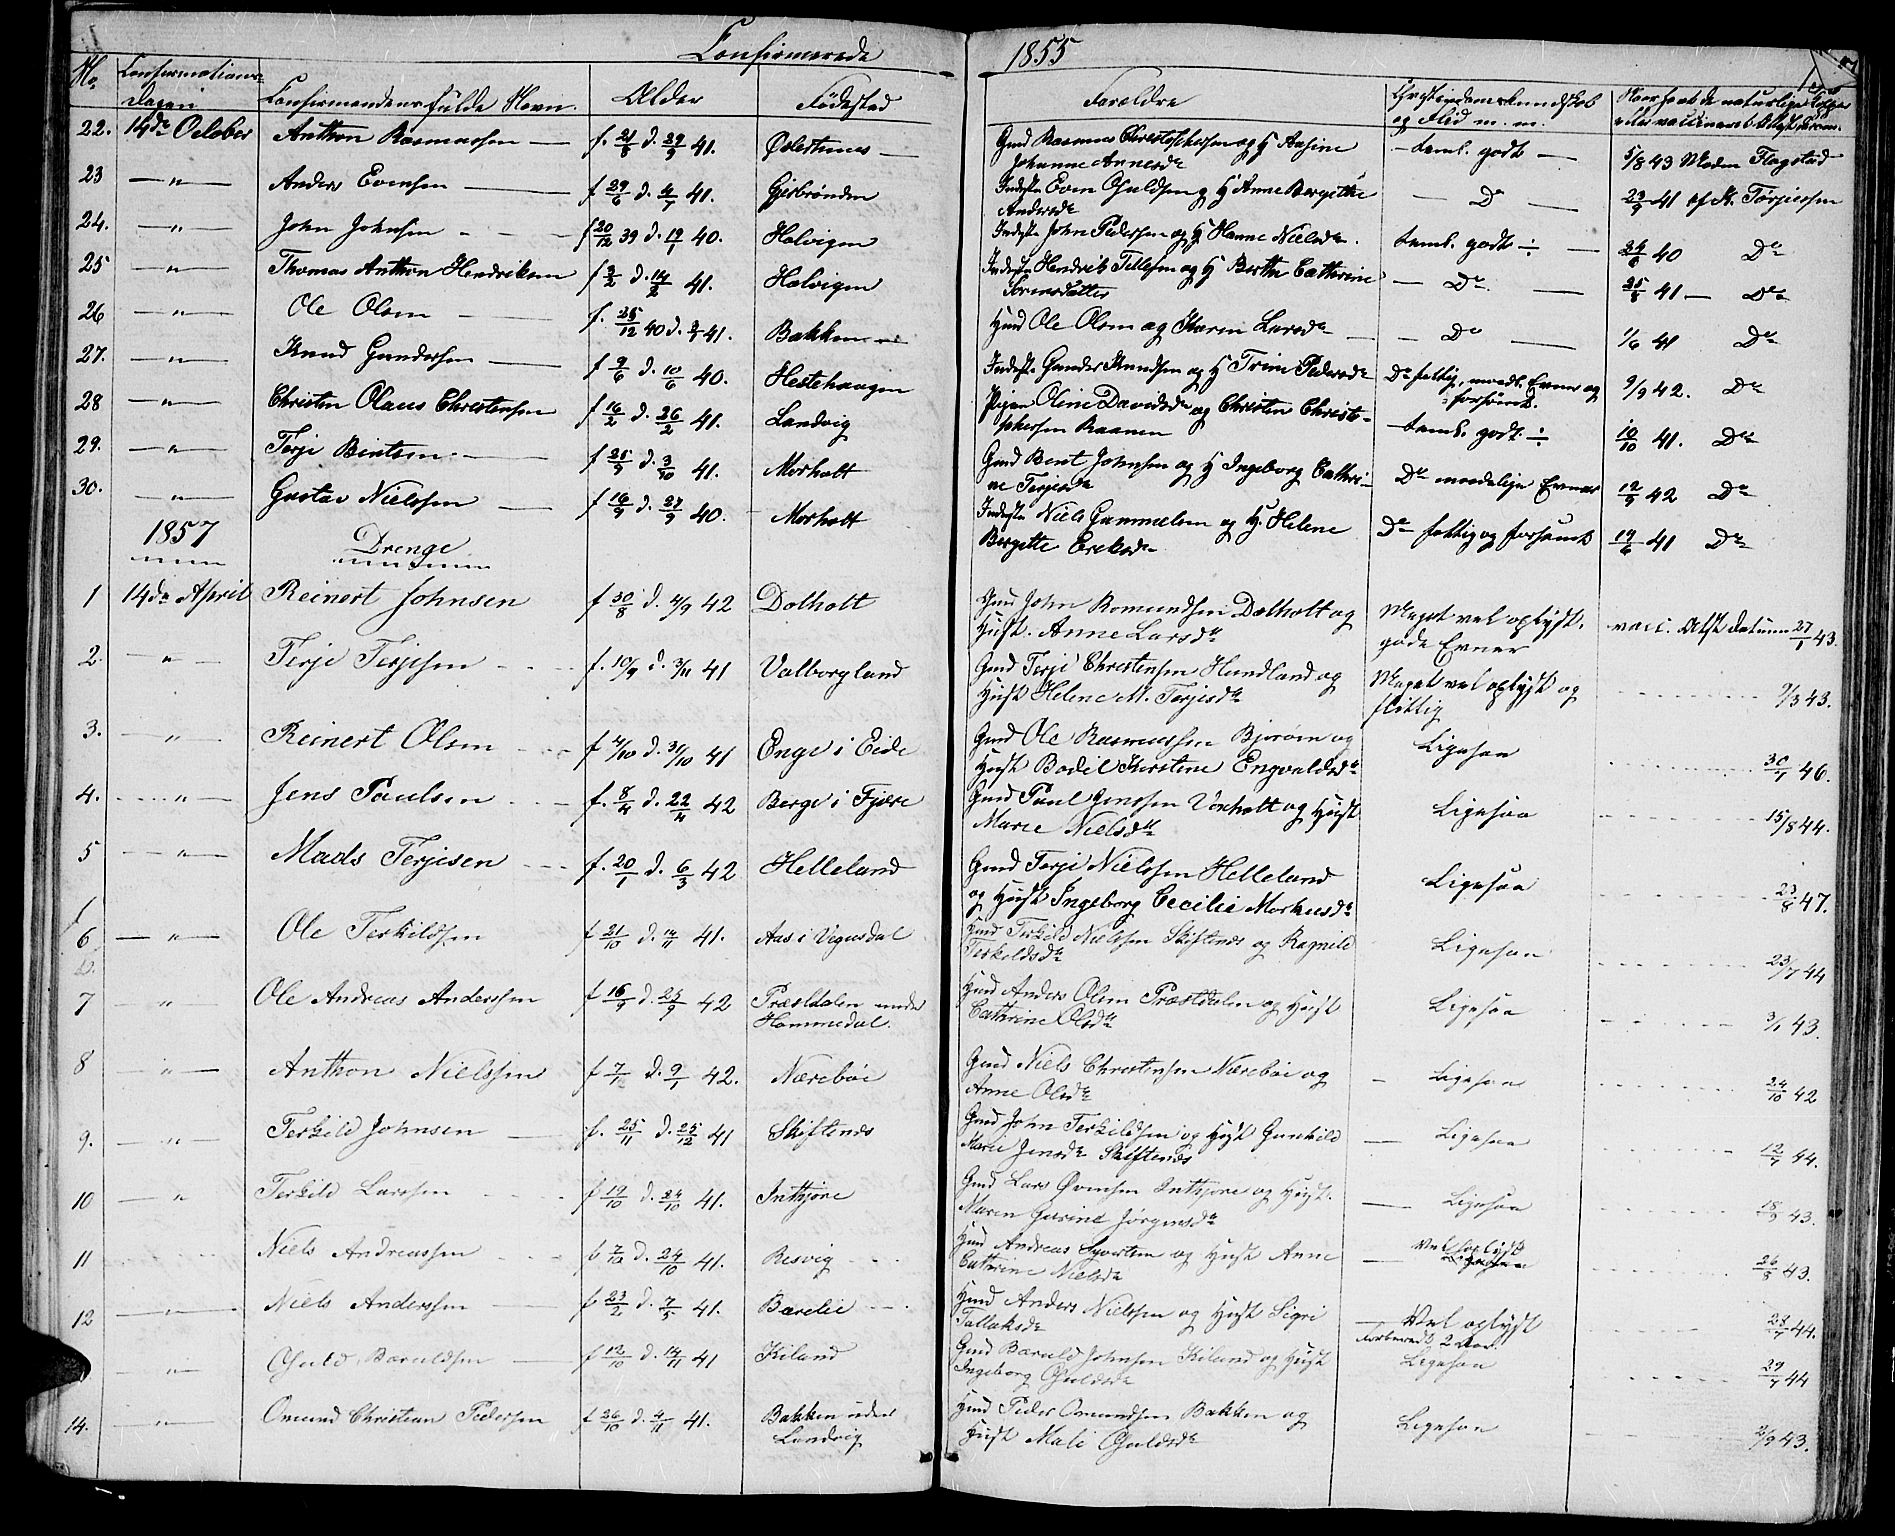 Confirmerede 1855
No Confirmations-Dagen Confirmandens fulde Navn. Alder Fødestad Forældre Christendomskundskab og Flid m. m.
22. 14de October Anthon Rasmussen f. 21/8 d. 29/9 41. Gmd Rasmus Christophersen og H Aasine Johanne Annesdr teml. godt 5/8 43 Flagstad
23 " Anders Evensen f 29/6 d. 4/7 41. Gjerbrønden Inderste Even Osuldsen og H Anne Bergithe Andersdr Do 23/9 41 af A. Torjussen
24. " John Johnsen f 20/12 39 d. 19/1 40. Holvigen Inderste John Pedersen og H Hanne Nielsdr. teml. godt ÷ 24/8 40 Do
25 " Thomas Anthon Hendriksen f 3/2 d. 14/2 41. Holvigen Inderste Hendrik Tellefsen og H Berthe Cathrine Sørensdatter Do 25/8 41 Do
26 " Ole Olsen f. 25/12 40 d. 2/1 41. Bakken Hmd Ole Olsen og Karen Larsdr Do 1/6 41 Do
27. " Knud Gundersen f 9/6 d. 10/6 40. Hestehaugen Inderste Gunder Knudsen og H Trine Pedersdr Do fattig, maadl. Evner og forsømt. 9/9 42. Do
28 " Christen Olaus Christensen f 16/2 d. 26/2 41. Landvig Pigen Oline Davidsdr og Christen Christophersen Raanen teml. godt. ÷ 10/10 41. Do
29. " Terje Bentsen f 25/9 d. 3/10 41. Morholt Gmd Bent Johnsen og H Ingeborg Cathrine Terjesdr Do maadelige Evner 12/9 42 Do
30. " Gustav Nielssen f 16/9 d. 27/9 40. Morholt Inderste Niels Gammelsen og H. Helene Bergitte Ereksdr Do fattig og forsømt 19/6 41 Do
1857 Drenge
1 14de April Reinert Johnsen f 30/8 d. 4/9 42 Dolholt Gmd John Romundsen Dalholt og Hust. Anne Larsdr Meget vel oplyst. gode Evner vacc. Attst datum 27/1 43.
2. " Terje Terjesen f. 10/9 d. 3/11 41 Valborgland Gmd Terje Christensen Hundland og Hust Helene M. Terjesdr Meget vel oplyst og flittig 9/3 43.
3. " Reinert Olsen f 4/10 d. 31/10 41 Enge i Eide Gmd Ole Rasmussen Bjoroen og Hust Bodil Kerstine Engvaldsdr Ligesaa 30/1 46.
4. " Jens Paulsen f. 8/4 d. 22/4 42 Berge i Fjære Gmd Paul Jenssen Voxholt og Hust Marie Nielsdr Ligesaa 15/8 44.
5 " Mads Terjesen f. 20/1 d. 6/3 42 Helleland Gmd Terje Nielssen Helleland og Hust Ingeborg Cecilie Markusdr Ligesaa 23/8 47.
6 " Ole Terkildsen f 21/10 d. 14/11 41. Aas i Vegusdal Gmd Terkild Nielssen Skiftenes og Ragnild Terkeldsdr Ligesaa 23/7 44
7 " Ole Andreas Anderssen f 16/9 d. 25/9 42 Præstdalen under Hommedal. Hmd Anders Olsen Præstdalen og Hust Cathrine Olsdr Ligesaa 3/1 43.
8 " Anthon Nielssen f 7/1 d. 9/1 42. Nærebøe Gmd Niels Christensen Nærebøe og Anne Olsdr Ligesaa 24/10 42
9. " Terkild Johnsen f. 25/11 d. 25/12 41 Skiftenes Gmd John Terkildsen og Hust Gunhild Marie Jensdr Skiftenes Ligesaa 12/7 44.
10 " Terkild Larssen f 19/10 d. 24/10 41. Inthjore Gmd Lars Evensen Inthjore og Hust. Maren Gurine Jørgensdr Ligesaa 18/9 43.
11 Niels Andreassen f 7/10 d. 24/10 41. Resvig Hmd Andreas Syvertsen og Hust Anne Cathrine Nielsdr Vel oplyst 26/8 43.
12 " Niels Anderssen f 23/2 d. 7/5 41. Barelie Hmd Anders Nielssen og Hust Sigri Tallaksdr Vel oplyst 28/7 44.
" Osuld Baruldsen f 12/10 d. 14/11 41 Kiland Gmd Baruld Johnsen Kiland og Hust Ingeborg Osuldsdr forberedt 2 Aar. Ligesaa 29/7 44
14. " Omund Christian Pedersen f 26/10 d. 4/11 41. Bakken under Landvig Hmd Peder Omundsen Bakken og Hust Mali Osuldsdr Ligesaa 2/9 43.